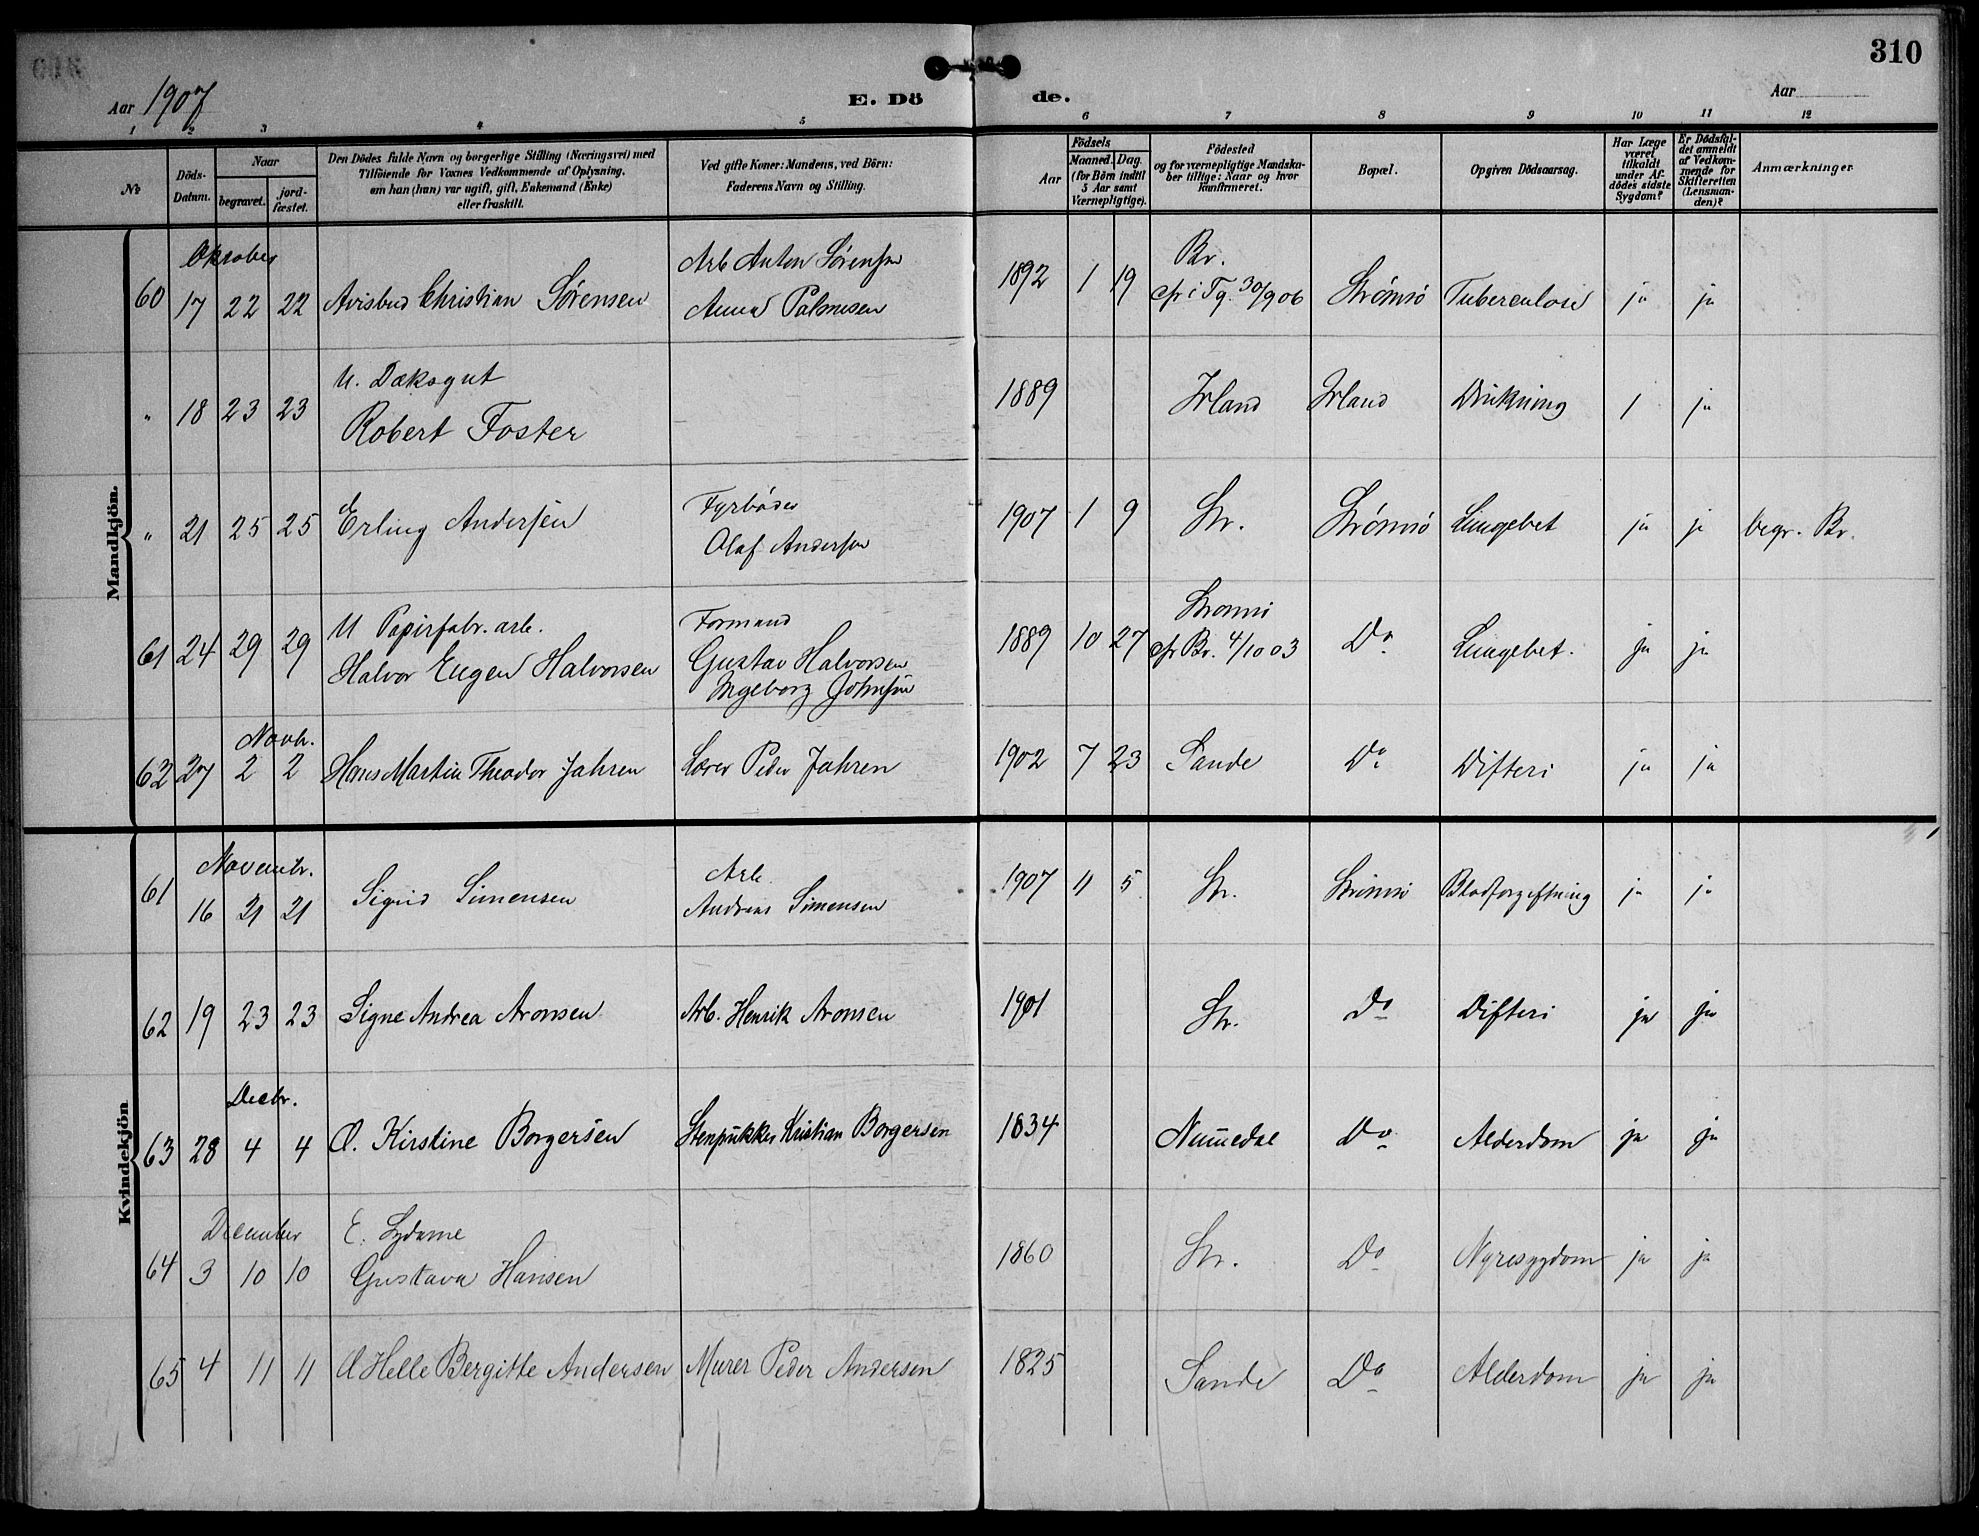 310
Aar 1907
E. Dö
de.
Aar
1 2 3 4 5 6 7 8 9 10 11 12
№
Döds-
Datum.
Naar
begravet.
jord-
fæstet.
Den Dödes fulde Navn og borgerlige Stilling (Næringsvei) med
Tilföiende for Voxnes Vedkommende af Oplysning,
om han (hun) var ugift, gift, Enkemand (Enke)
eller fraskilt.
Ved gifte Koner: Mandens, ved Börn:
Faderens Navn og Stilling.
Födsels
Aar
Maaned. Dag.
(for Börn indtil
5 Aar samt
Værnepligtige).
Födested
og for værnepligtige Mandska-
ber tillige: Naar og hvor
konfirmeret.
Bopæl.
Opgiven Dödsaarsag.
Har Læge
været
tilkaldt
under Af-
dödes sidste
Sygdom?
Er Dödsfal-
det anmeldt
af Vedkom-
mende for
Skifteretten
(Lensman-
den)?
Anmærkninger
Mandkjön.
Oktober Arb Anton Sørensen Br.
60 17 22 22 Christian Sørensen Anna 1892 1 19 cfr i Tg. 30/9 06 Strømsø Tuberculose ja ja
U. Dæksgut
" 18 23 23 Robert Foster 1889 Irland Irland Drukning / ja
Fyrbøder
" 21 25 25 Erling Andersen Olaf Andersen 1907 1 9 Str. Strømsø Lungebet ja ja begr. Br.
U Papirfabr. arb. Formand Strømsø
61 24 29 29 Halvor Eugen Halvorsen Gustav Halvorsen 1889 10 27 cfr Br. 4/10 03 Do Lungebet. ja ja
Ingeborg Johnsen
Novbr.
62 27 2 2 Hans Martin Theodor Jahren Lærer Peder Jahren 1902 7 23 Sande Do Difteri ja ja
Kvindekjön
Novembr. Arb.
61 16 21 21 Sigrid Simensen Andreas Simensen 1907 11 5 Str. Strømsø Blodforgiftning ja ja
62 19 23 23 Signe Andrea Aronsen Arb. Henrik Aronsen 1901 Str. Do Difteri ja ja
Decbr.
63 28 4 4 Kirstine Borgersen Stenpukker Kristian Borgersen 1834 Numedal Do Alderdom ja ja
December E. Sydame
64 3 10 10 Gustava Hansen 1860 Str. Do Nyresygdom ja ja
65 4 11 11 Helle Bergitte Andersen Murer Peder Andersen 1825 Sande Do Alderdom ja ja